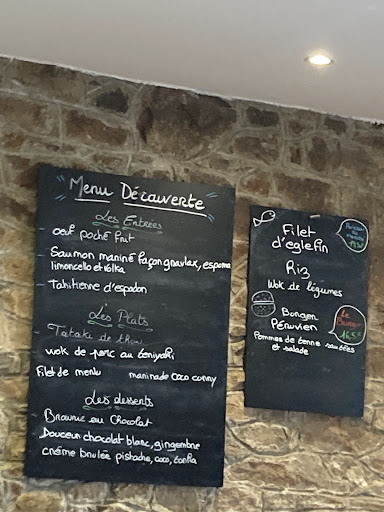 Menu Découverte
Les Entrées
- oeuf poché frit
- Saumon mariné façon gravlax, espuma
limoncello et
- Tahitienne d'espadon
Les Plats
- Tataki de thon
wok de porc au teriyaki
Filet de merlu marinade coco curry
Les desserts
- Brownie au chocolat
Douceur chocolat blanc, gingembre
crème brulée pistache, coco, tonka
Filet
d'eglefin
Riz
Wok de légumes
Poisson
du
Burger
Péruvien
Pommes de terre sautées
et salade
Le
Burger
16.5€